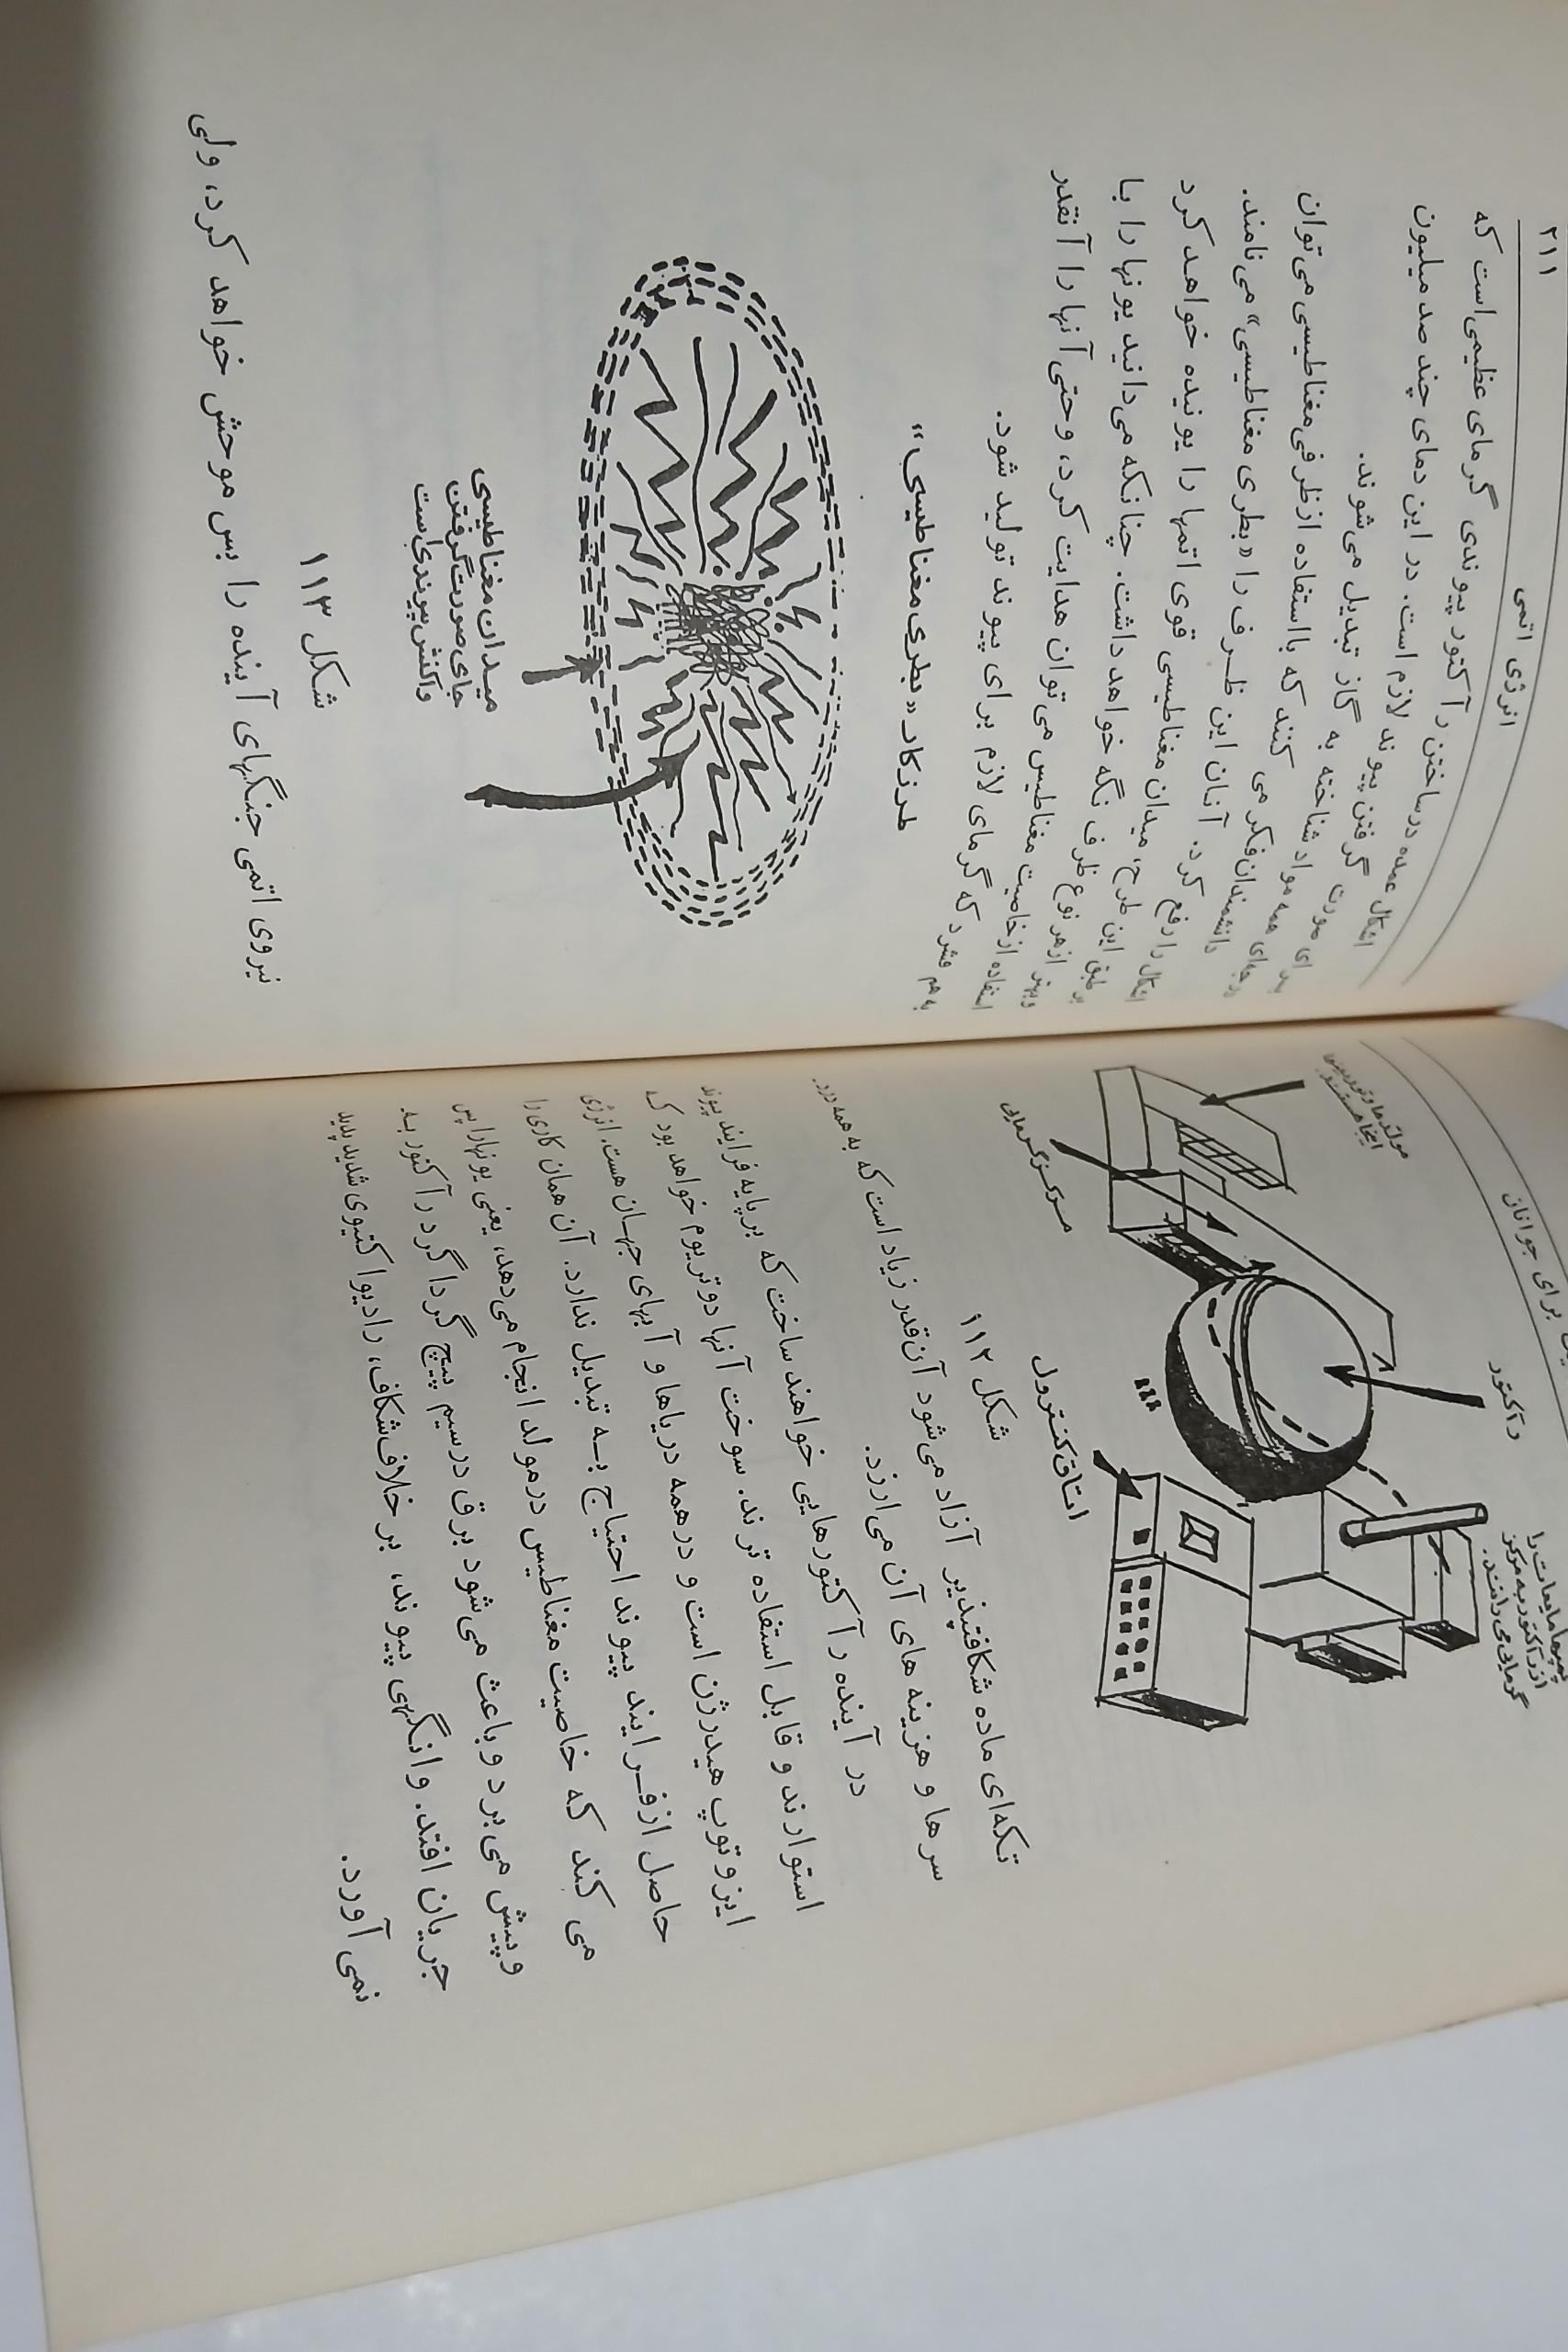 برای جوانان
مولدها و توربینها
اینجا هستند
رآکتور
پمپها مایعات را
از رآکتور به مرکز
گرمایی می رانند.
مرکز گرمایی
اتاق کنترول
شکل ۱۱۲
تکه‌ای ماده شکافتپذیر آزاد می‌شود آن‌قدر زیاد است که به همه درد
سرها و هزینه های آن می‌ارزد.
در آینده رآکتورهایی خواهند ساخت که برپایه فرایند پیوند
استوارند و قابل استفاده ترند. سوخت آنها دوتریوم خواهد بود که
ایزوتوپ هیدرژن است و درهمه دریاها و آبهای جهان هست. انرژی
حاصل ازفرایند پیوند احتیاج به تبدیل ندارد. آن همان کاری را
می کند که خاصیت مغناطیس درمولد انجام می‌دهد، یعنی یونهارا پس
وپیش می‌برد و باعث می‌شود برق درسیم پیچ گرداگرد رآکتور به
جریان افتد. وانگهی پیوند، برخلاف شکاف، رادیواکتیوی شدید پدید
نمی آورد.
انرژی اتمی
۲۱۱
اشکال عمده درساختن رآکتور پیوندی گرمای عظیمی است که
برای صورت گرفتن پیوند لازم است. در این دمای چند صد میلیون
درجه‌ای همه مواد شناخته به گاز تبدیل می‌شوند.
دانشمندان فکر می کنند که بااستفاده ازظرفی مغناطیسی می‌توان
اشکال را رفع کرد. آنان این ظرف را «بطری مغناطیسی» می‌نامند.
بر طبق این طرح، میدان مغناطیسی قوی اتمها را یونیده خواهد کرد
وبهتر ازهر نوع ظرف نگه خواهد داشت. چنانکه می‌دانید یونها را با
استفاده ازخاصیت مغناطیس می‌توان هدایت کرد، وحتی آنها را آنقدر
به هم فشرد که گرمای لازم برای پیوند تولید شود.
طرزکار «بطری مغناطیسی»
میدان مغناطیسی
جای صورت گرفتن
واکنش پیوندی است
شکل ۱۱۳
نیروی اتمی جنگهای آینده را بس موحش خواهد کرد، ولی